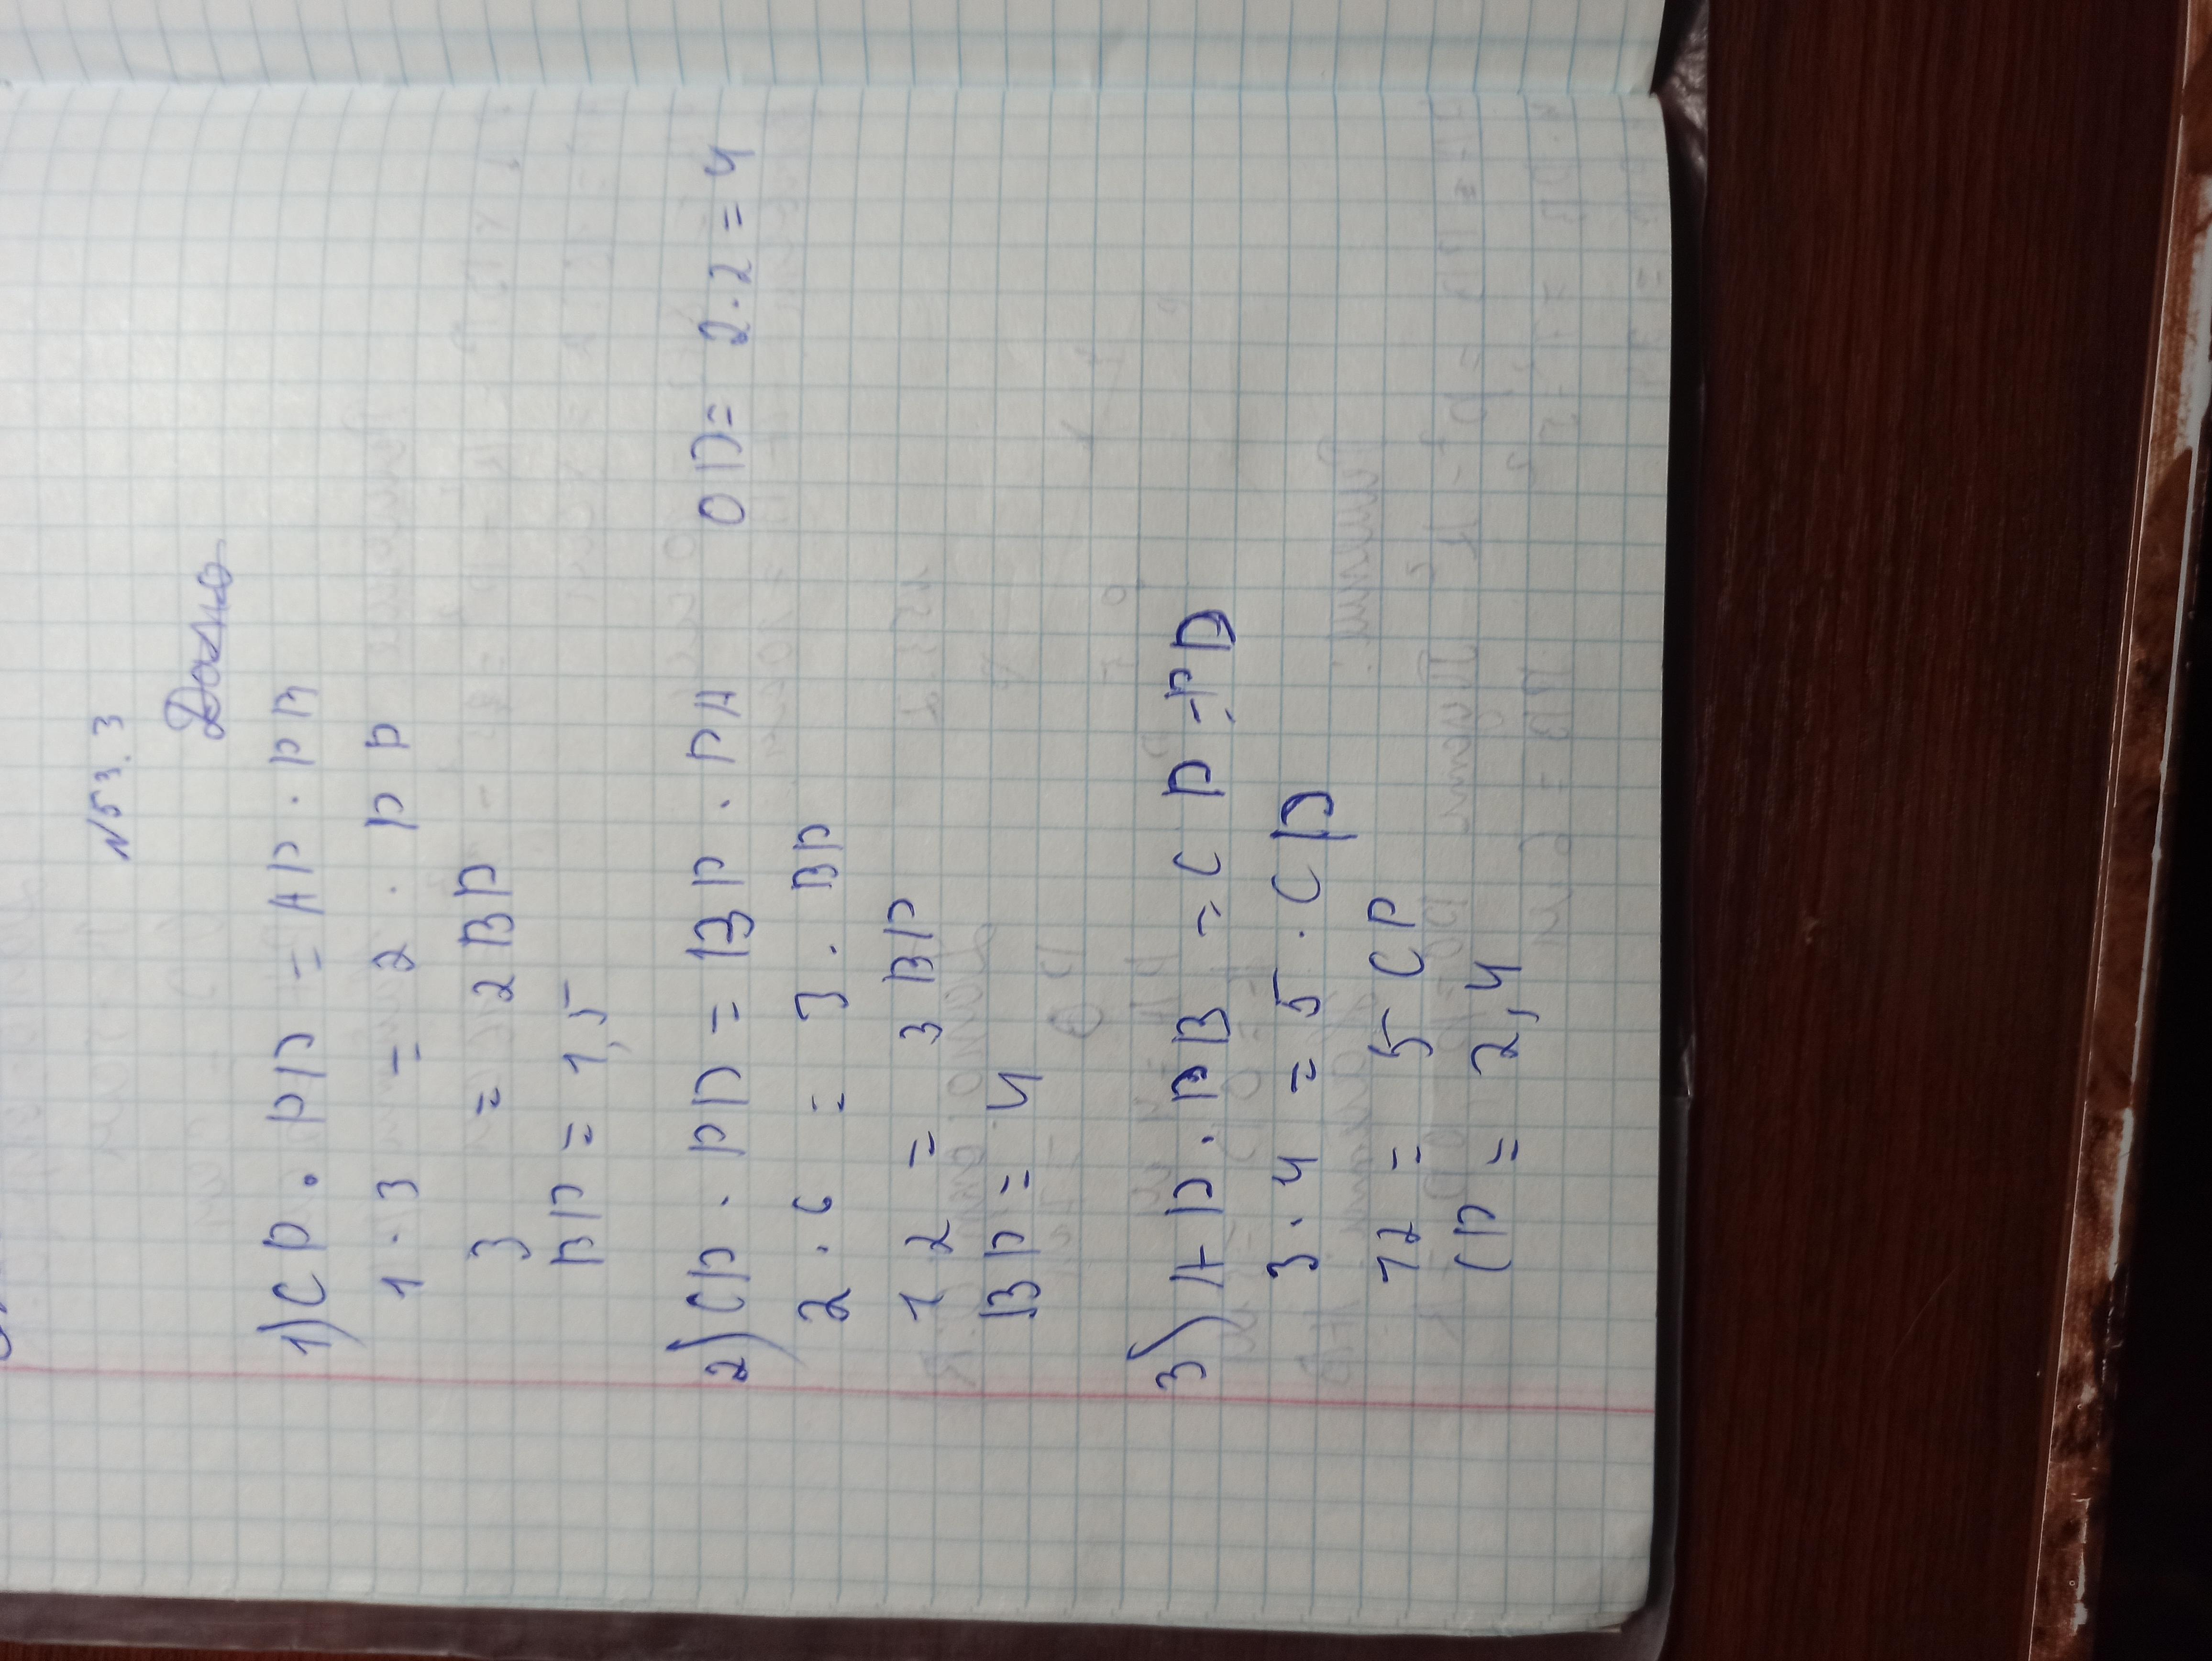 №53.3
1) CP · PD = AP · PB
1 · 3 = 2 · PP
3 = 2BP
BP = 1,5
2) CP · PD = BP · PA OD = 2 · 2 = 4
2 · 6 = 3 · BP
12 = 3BP
BP = 4
3) AP · PB = CP · PD
3 · 4 = 5 · CP
12 = 5CP
CP = 2,4